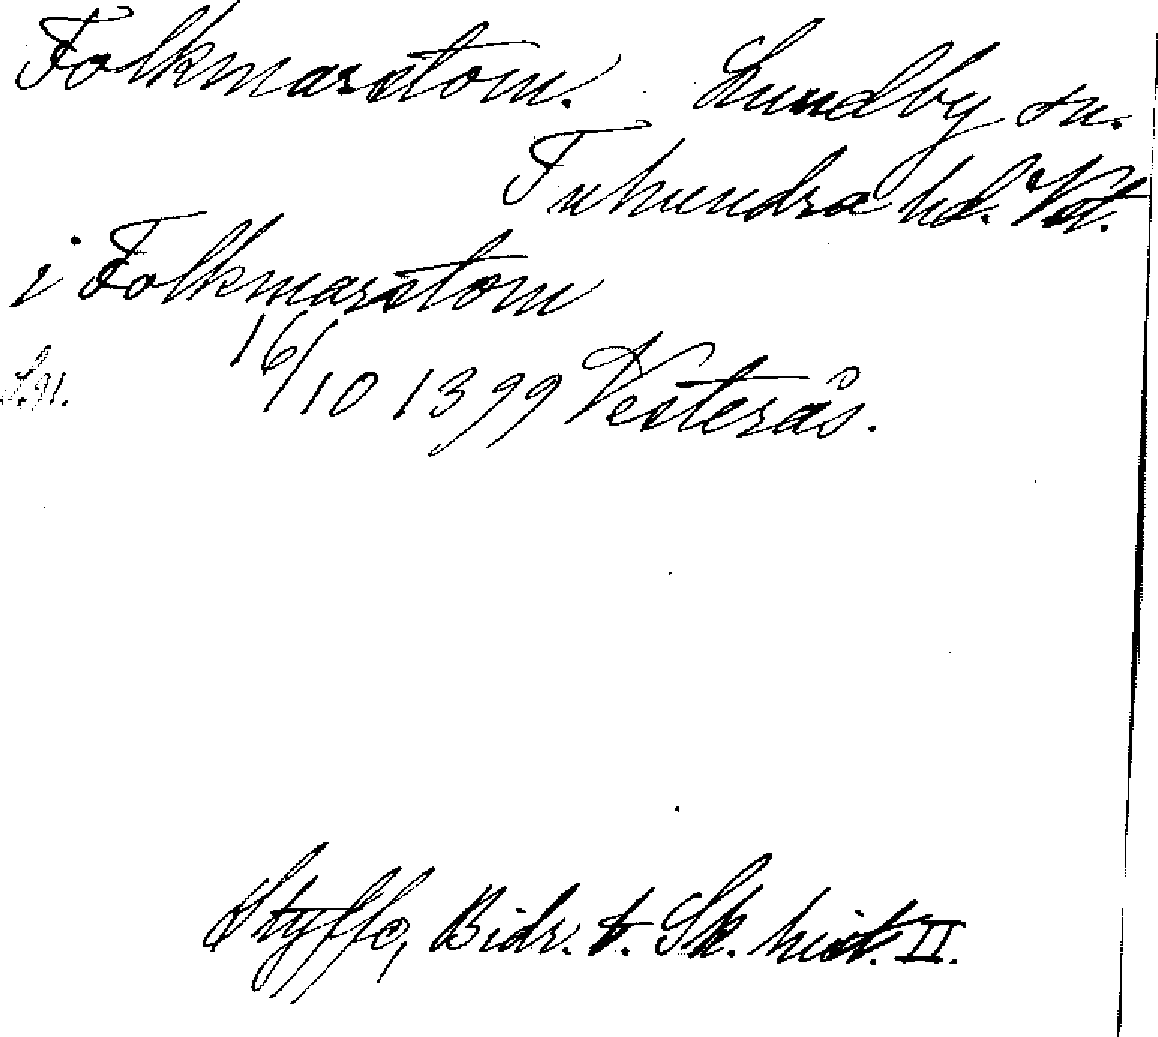 Folkmarstom. Lundby sn.
Tuhundra hd. Vst.
i Folkmarstom
16/10 1399 Vesterås.
S. 91.
Styffe, Bidr. t. Sk. hist. II.